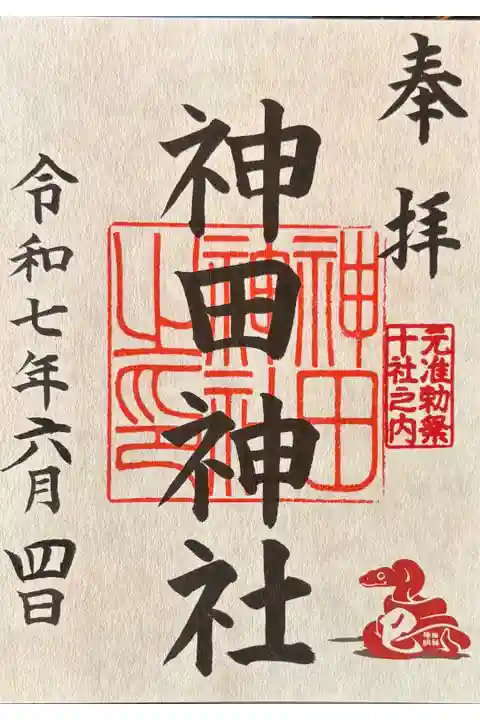 奉拝
神田神社
神田
神社
之印
元准勅祭
十社之内
令和七年六月四日